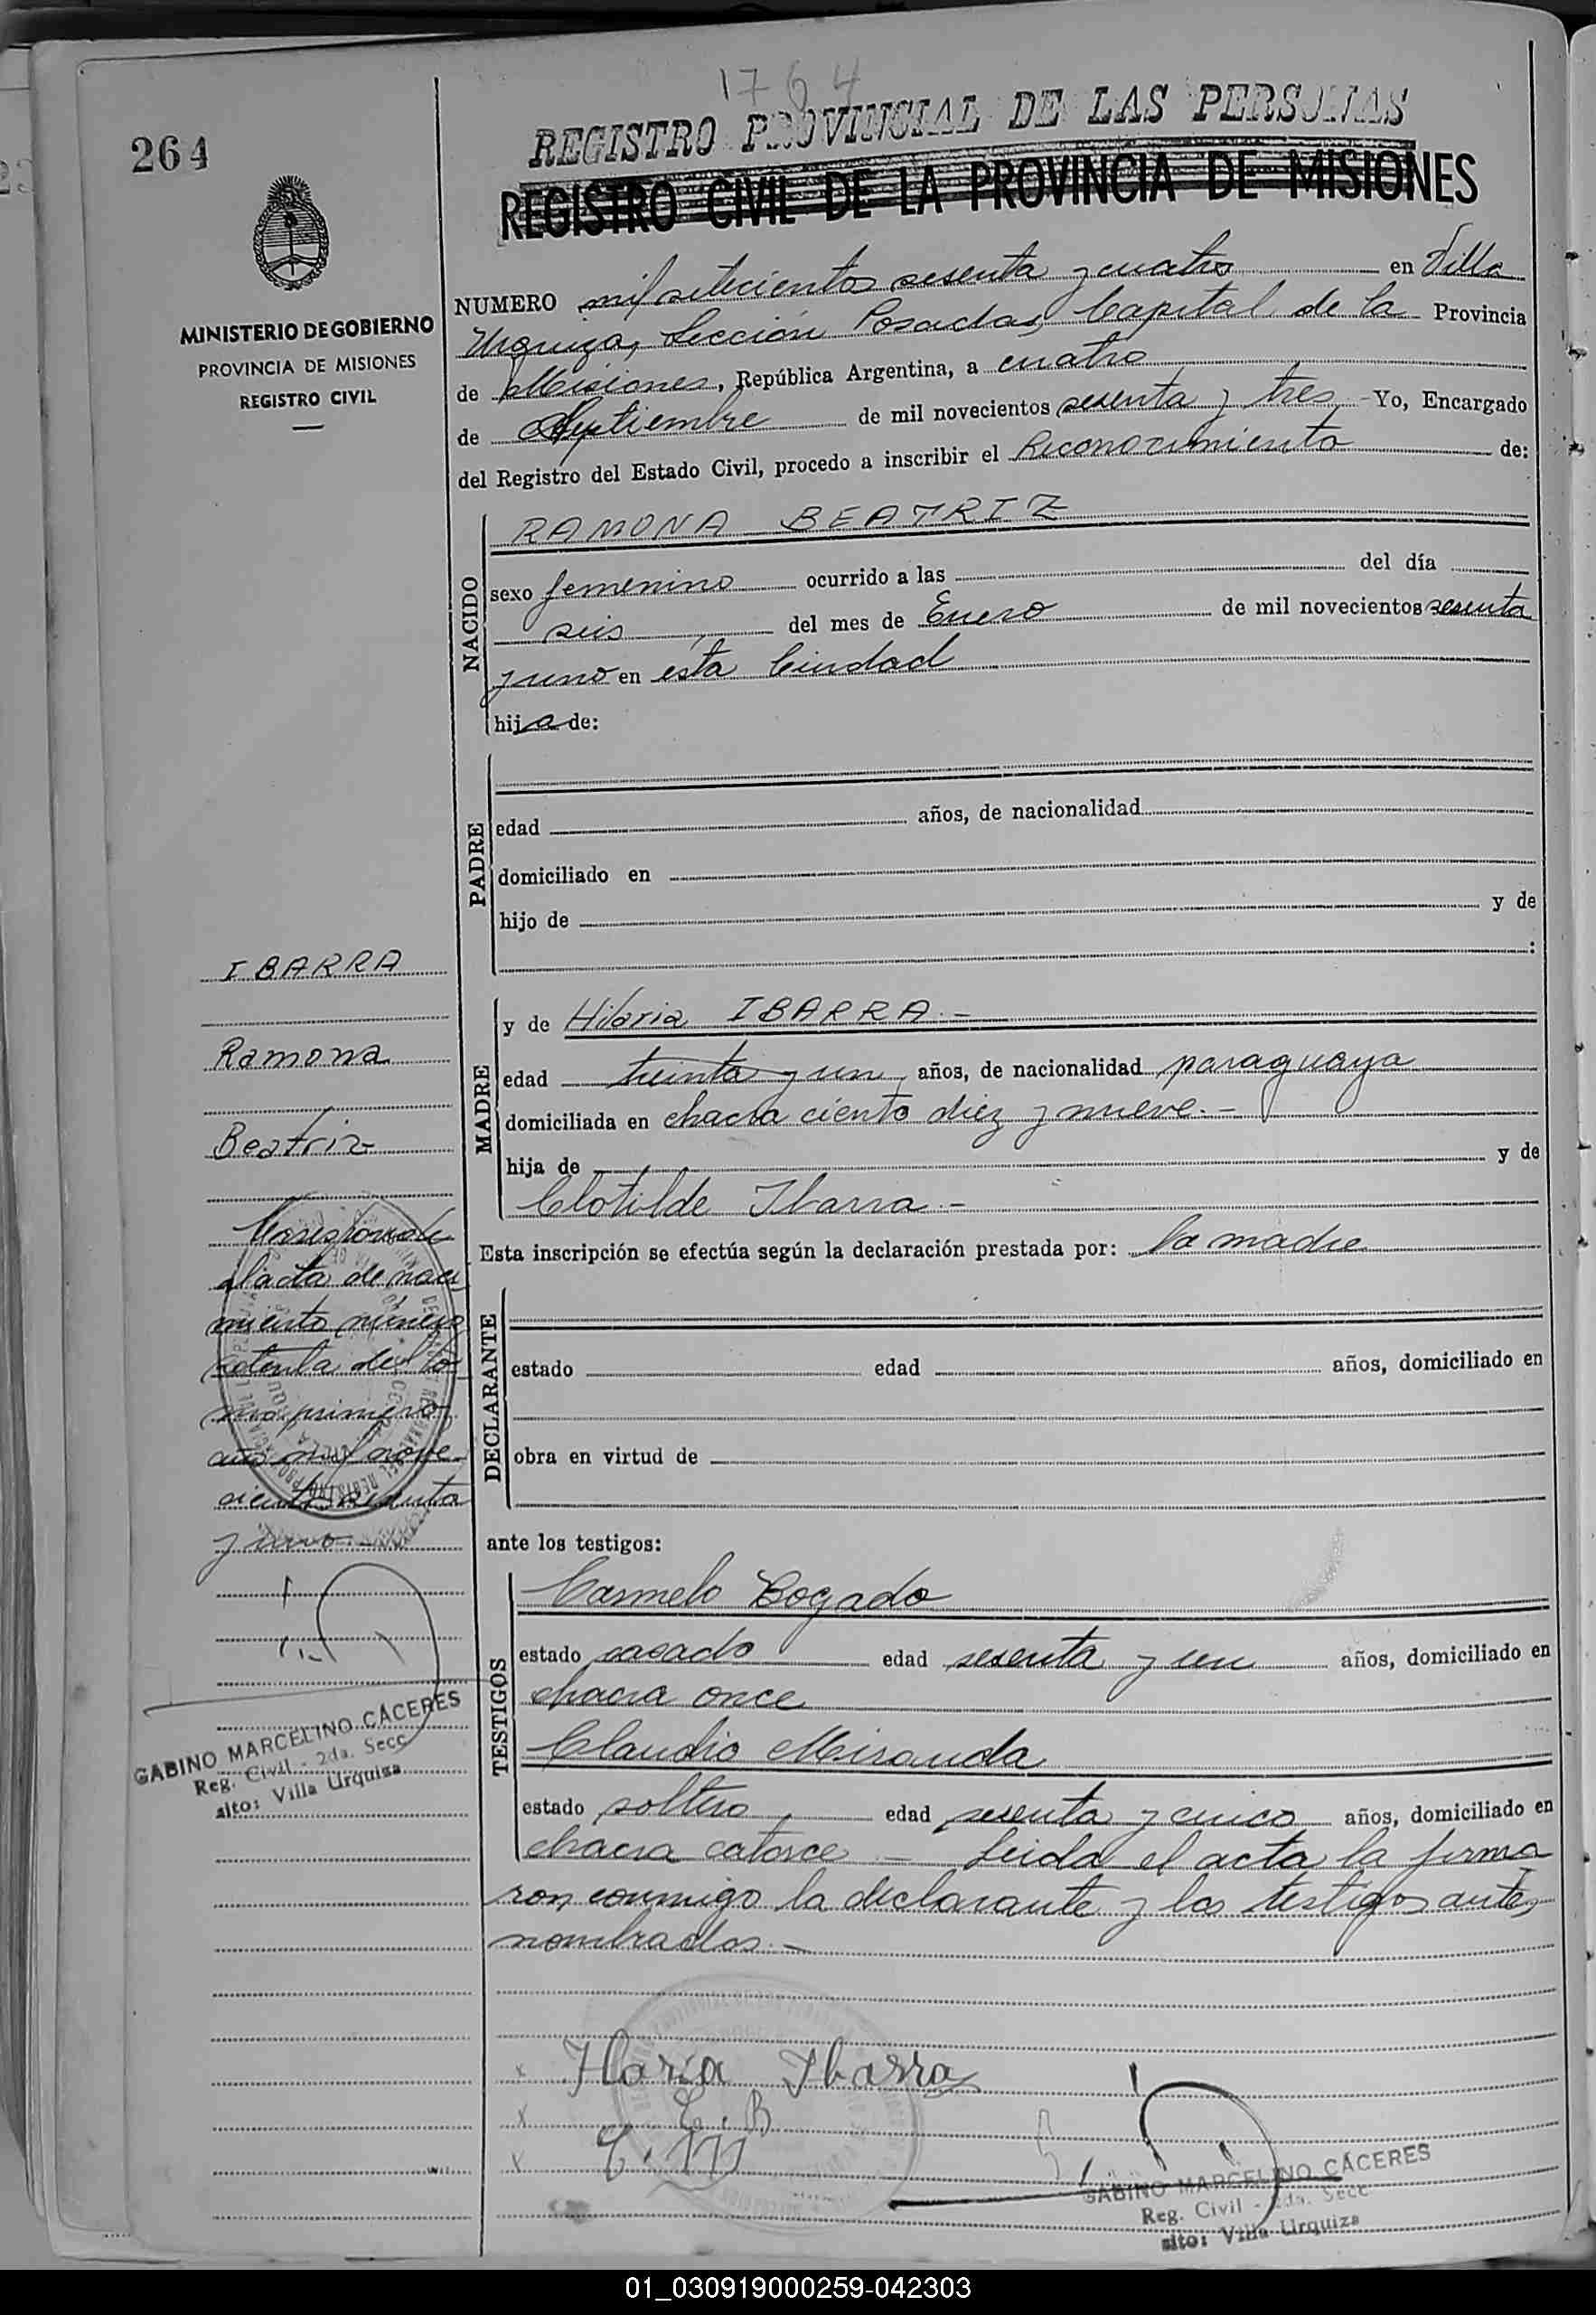 1764
264
REGISTRO PROVINCIAL DE LAS PERSONAS
REGISTRO CIVIL DE LA PROVINCIA DE MISIONES
MINISTERIO DE GOBIERNO
PROVINCIA DE MISIONES
REGISTRO CIVIL
NUMERO mil setecientos sesenta y cuatro en Villa
Urquiza, Sección Posadas, Capital de la Provincia
de Misiones, República Argentina, a cuatro
de Septiembre de mil novecientos sesenta y tres Yo, Encargado
del Registro del Estado Civil, procedo a inscribir el Reconocimiento de:
NACIDO
RAMONA BEATRIZ
sexo femenino ocurrido a las del día
seis del mes de Enero de mil novecientos sesenta
y uno en esta Ciudad
hija de:
PADRE
edad años, de nacionalidad
domiciliado en
hijo de y de
:
MADRE
y de Hilaria IBARRA.-
edad treinta y un años, de nacionalidad paraguaya
domiciliada en chacra ciento diez y nueve.-
hija de y de
Clotilde Ibarra.-
Esta inscripción se efectúa según la declaración prestada por: la madre
DECLARANTE
estado edad años, domiciliado en
obra en virtud de
ante los testigos:
TESTIGOS
Carmelo Bogado
estado casado edad sesenta y un años, domiciliado en
chacra once
Claudio Miranda
estado soltero edad sesenta y cinco años, domiciliado en
chacra catorce - Leida el acta la firma
ron conmigo la declarante y los testigos antes
nombrados.-
IBARRA
Ramona
Beatriz
Corresponde
al acta de naci
miento número
setenta del to
mo primero
año mil nove
cientos sesenta
y uno.-
GABINO MARCELINO CÁCERES
Reg. Civil - 2da. Secc
sito: Villa Urquiza
x Ilaria Ibarra
x C. B
x C. M
GABINO MARCELINO CÁCERES
Reg. Civil - 2da. Secc
sito: Villa Urquiza
01_030919000259-042303